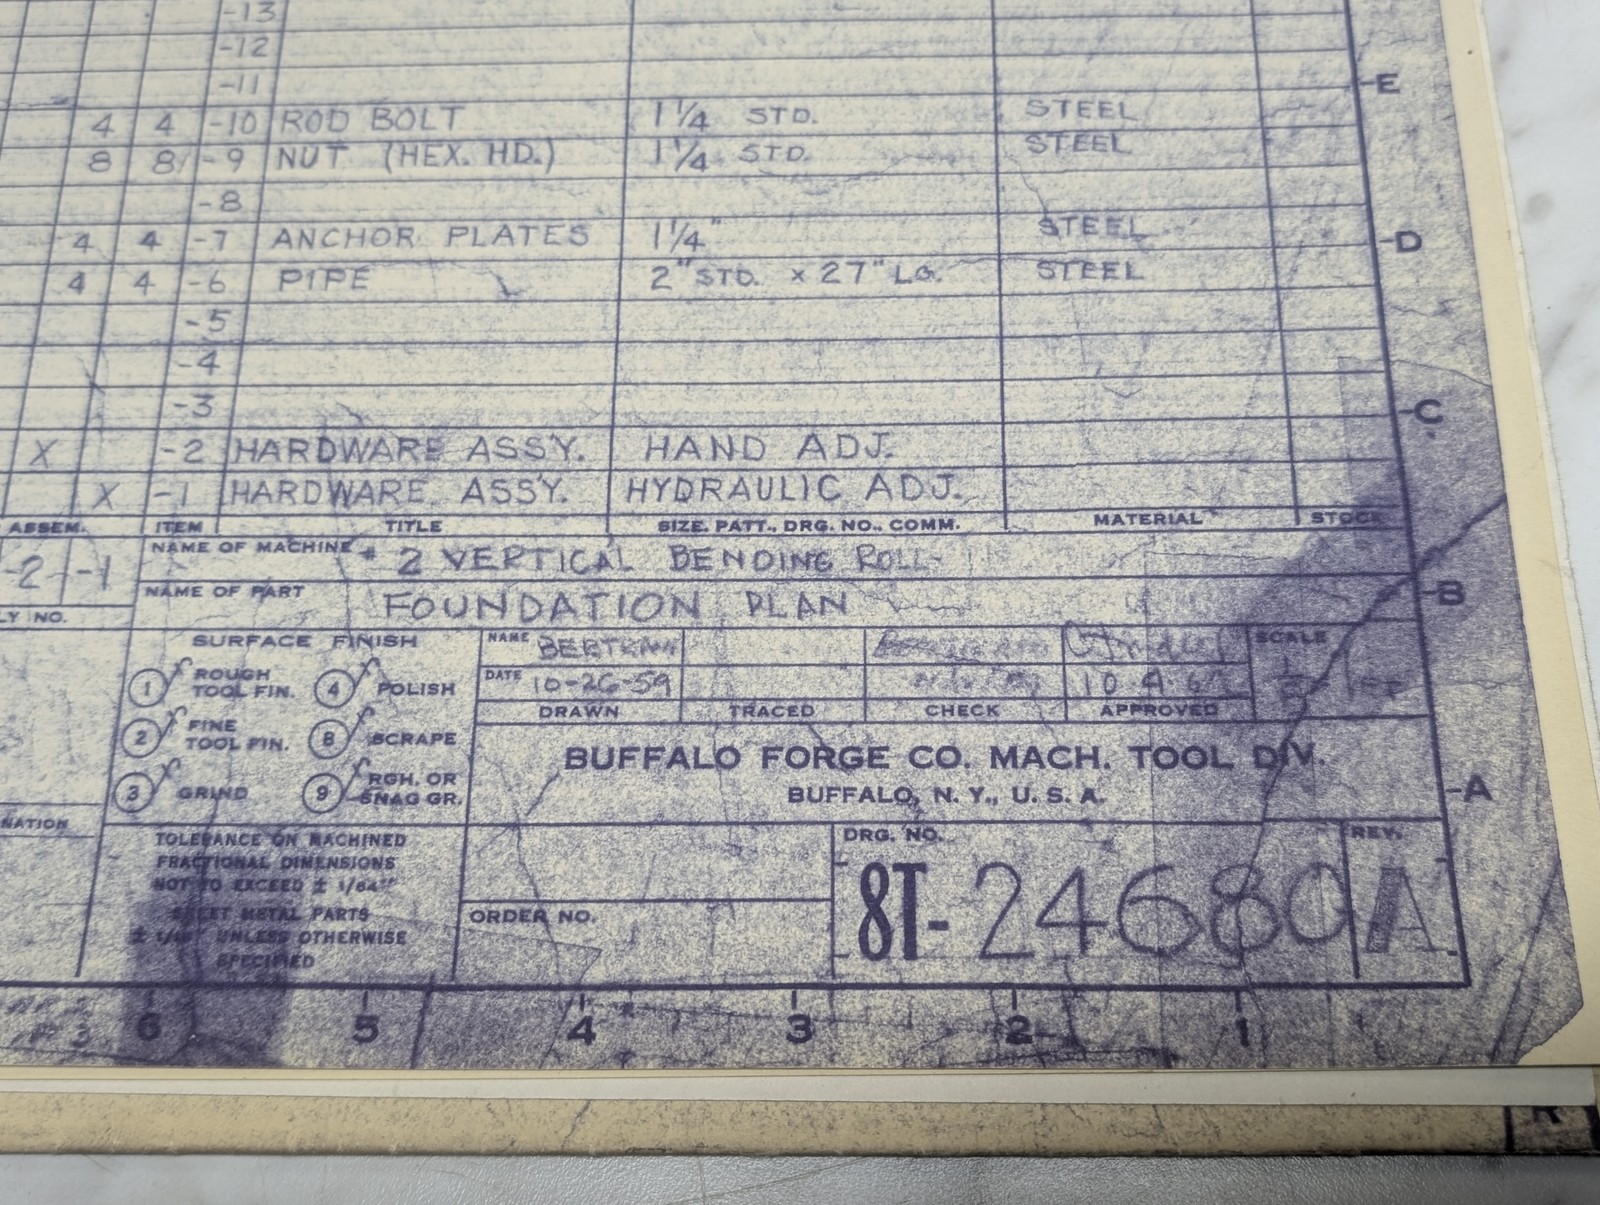 -13
-12
-11
4 4 -10 ROD BOLT 1 1/4 STD. STEEL
8 8 -9 NUT (HEX. HD.) 1 1/4 STD. STEEL
-8
4 4 -7 ANCHOR PLATES 1 1/4" STEEL
4 4 -6 PIPE 2" STD. x 27" LG. STEEL
-5
-4
-3
X -2 HARDWARE ASSY. HAND ADJ.
X -1 HARDWARE ASSY. HYDRAULIC ADJ.
ASSEM. ITEM TITLE SIZE. PATT., DRG. NO., COMM. MATERIAL STOCK
-2 -1
LY NO.
NAME OF MACHINE # 2 VERTICAL BENDING ROLL
NAME OF PART FOUNDATION PLAN
SURFACE FINISH
1 ROUGH TOOL FIN. 4 POLISH
2 FINE TOOL FIN. 8 SCRAPE
3 GRIND 9 RGH. OR SNAG GR.
NATION
TOLERANCE ON MACHINED
FRACTIONAL DIMENSIONS
NOT TO EXCEED ± 1/64"
SHEET METAL PARTS
UNLESS OTHERWISE
SPECIFIED
NAME SCALE
DATE 10-26-59
DRAWN TRACED CHECK APPROVED
BUFFALO FORGE CO. MACH. TOOL DIV.
BUFFALO, N. Y., U. S. A.
ORDER NO.
DRG. NO. REV.
8T-24680 A
E
D
C
B
A
6 5 4 3 2 1